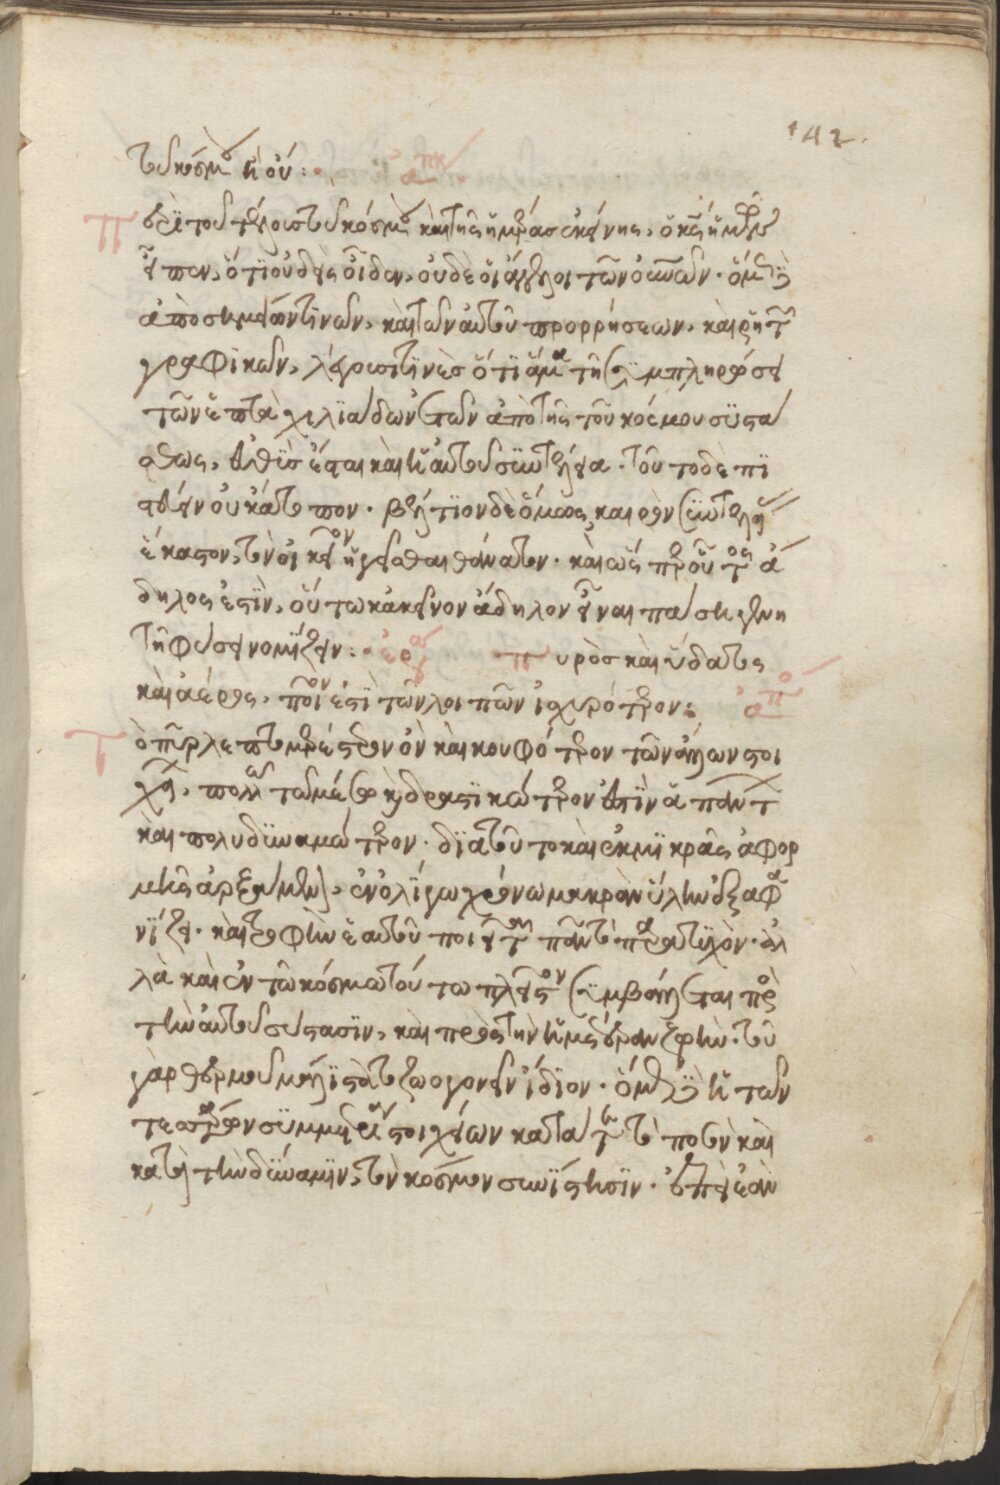 142
τοῦ κόσμου ἢ οὔ: ἀπόκ
Περὶ τοῦ τέλους τοῦ κόσμου καὶ τῆς ἡμέρας ἐκείνης, ὁ κύριος ἡμῶν
εἶπεν, ὅτι οὐδεὶς οἶδεν, οὐδὲ οἱ ἄγγελοι τῶν οὐρανῶν. ὅμως
ἀπὸ σημείων τινῶν, καὶ τῶν αὐτοῦ προρρήσεων, καὶ ῥητῶν
γραφικῶν, λέγουσι τινὲς ὅτι ἅμα τῇ συμπληρώσει
τῶν ἑπτὰ χιλιάδων ἐτῶν ἀπὸ τῆς τοῦ κόσμου συστά
σεως, εὐθὺς ἔσται καὶ ἡ αὐτοῦ συντέλεια. τοῦτο δὲ πι
στεύειν οὐκ ἄτοπον. βέλτιον δὲ ὅμως καιρὸν συντελείας
ἕκαστον, τὸν οἰκεῖον ἡγεῖσθαι θάνατον. καὶ ὡς πρὸς οὗτος ἄ
δηλος ἐστὶν, οὕτω κἀκεῖνον ἄδηλον εἶναι πάσῃ γενη
τῇ φύσει νομίζειν: ἐρ πυρὸς καὶ ὕδατος
καὶ ἀέρος, ποῖον ἐστὶ τῶν λοιπῶν ἰσχυρότερον: ἀπό
Τὸ πῦρ λεπτομερέστερον ὂν καὶ κουφότερον τῶν ἄλλων στοι
χείων, πολλῷ τῷ μέτρῳ καὶ δραστικώτερον ἐστὶν ἁπάντων
καὶ πολυδυναμώτερον. διὰ τοῦτο καὶ ἐκ μικρᾶς ἀφορ
μῆς ἀρξάμενον, ἐν ὀλίγῳ χρόνῳ μακρὰν ὕλην ἐξαφα
νίζει. καὶ τροφὴν ἑαυτοῦ ποιεῖται πᾶν τὸ παρατυχὸν. ἀλ
λὰ καὶ ἐν τῷ κόσμῳ τούτῳ πλεῖστον συμβάλλεται πρὸς
τὴν αὐτοῦ σύστασιν, καὶ πρὸς τὴν ἡμετέραν ζωήν. τοῦ
γὰρ θερμοῦ μάλιστα τὸ ζωογονεῖν ἴδιον. ὅμως ἡ τῶν
τεσσάρων συμμετρία στοιχείων κατά τε τὸ ποσὸν καὶ
κατὰ τὴν δύναμιν, τὸν κόσμον συνίστησιν. ἐπεὶ ἐὰν